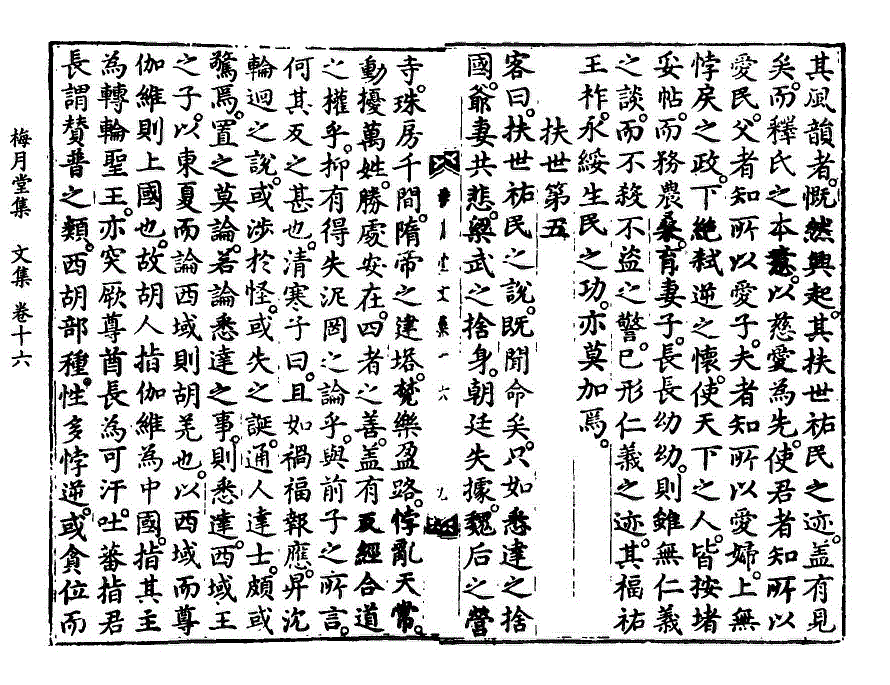 其風韻者慨然興起其扶世祐民之迹盖有見
矣而釋氏之本意以慈愛為先使君者知所以
愛民父者知所以愛子夫者知所以愛婦上無
悖戾之政下絶弑逆之懷使天下之人皆按堵
妥帖而務農桑育妻子長長幼幼則雖無仁義
之談而不殺不盜之警已形仁義之迹其福祐
王祚永綏生民之功亦莫加焉
扶世第五
客曰扶世祐民之說旣聞命矣只如悉達之捨
國爺妻共悲梁武之捨身朝廷失據魏后之營
寺珠房千間隋帝之建塔梵樂盈路悖亂天常
動擾萬姓勝處安在四者之善盖有反經合道
之權乎抑有得失泥罔之論乎與前子之所言
何其反之甚也清寒子曰且如禍福報應昇沈
輪迴之說或涉於怪或失之誕通人達士頗或
驚焉置之莫論若論悉達之事則悉達西域王
之子以東夏而論西域則胡羌也以西域而尊
伽維則上國也故胡人指伽維為中國指其主
為轉輪聖王亦突厥尊酋長為可汗吐蕃指君
長謂贊普之類西胡部種性多悖逆或貪位而
梅月堂集 文集 卷十六